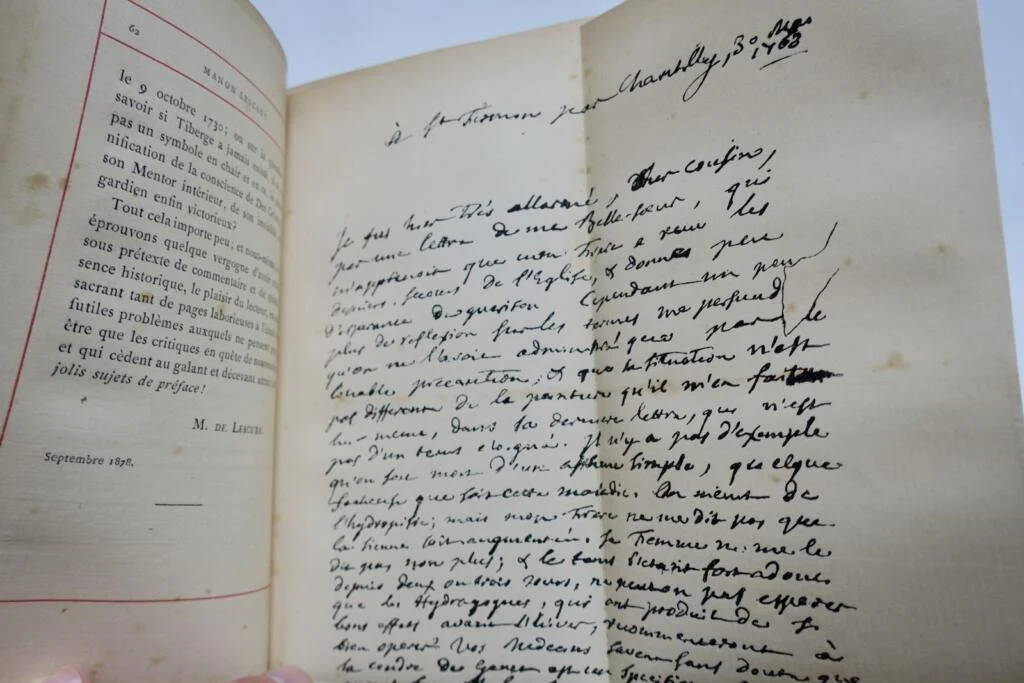 62
MANON LESCAUT
le 9 octobre 1730; ou sur la
savoir si Tiberge a jamais
pas un symbole en chair et en
nification de la conscience de Des
son Mentor intérieur, de son
gardien enfin victorieux?
Tout cela importe peu; et nous
éprouvons quelque vergogne d'avoir
sous prétexte de commentaire et de
sence historique, le plaisir du lecteur, en
sacrant tant de pages laborieuses à
futiles problèmes auxquels ne pensent
être que les critiques en quête de
et qui cèdent au galant et décevant
jolis sujets de préface!
M. DE LESCURE.
Septembre 1878.
à St Firmin par Chantilly, 30
1763
Je fus hier très allarmé, cher cousin,
par une lettre de ma Belle-sœur, qui
m'apprenoit que mon Frere a reçu les
derniers secours de l'Eglise, & donnes peu
d'esperance de guerison Cependant un peu
plus de reflexion sur les termes me persuad
qu'on ne l'avoit administré que par
louable précaution, & que sa situation n'est
pas differente de la peinture qu'il m'en fait
lui-meme, dans sa derniere lettre, qui n'est
pas d'un tems eloigné. Il n'y a pas d'exemple
qu'on soit mort d'un asthme simple, quelque
facheuse que soit cette maladie. On meurt de
l'hydropisie; mais mon Frere ne me dit pas que
la sienne soit augmentée. Sa Femme ne me le
dit pas non plus; & le tems s'etant fort adouci
depuis deux ou trois jours, ne peut on pas esperer
que les Hydragogues, qui ont produit de si
bons effets avant l'hiver, recommenceront à
bien operer? Vos Medecins savent sans doute que
la cendre de Genet est un specifique